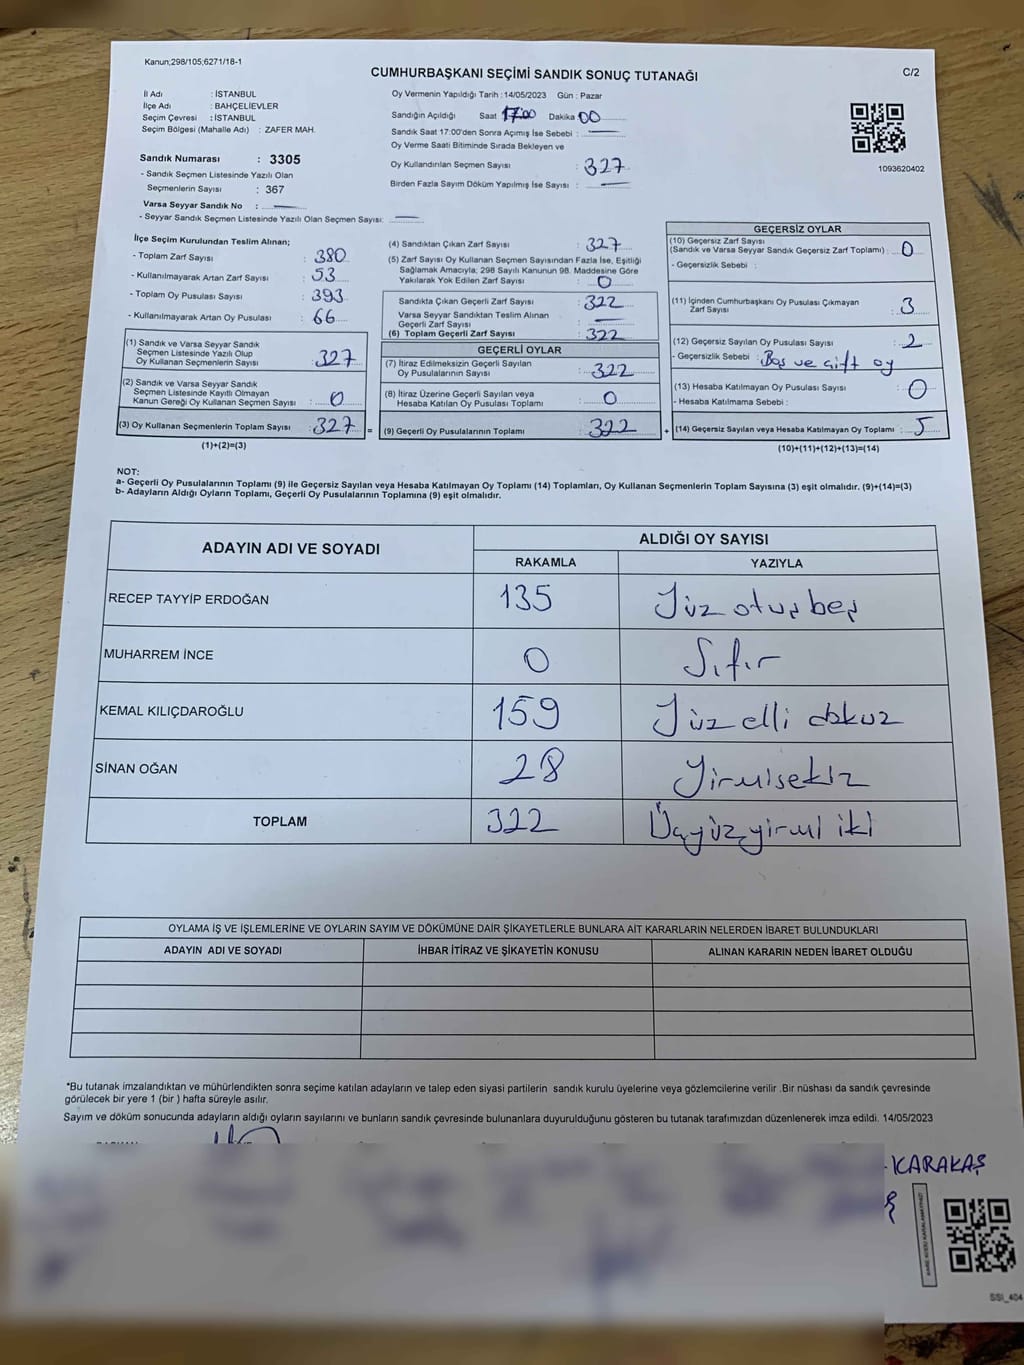 Kanun;298/105;6271/18-1
CUMHURBAŞKANI SEÇİMİ SANDIK SONUÇ TUTANAĞI
C/2
İl Adı : İSTANBUL
İlçe Adı : BAHÇELİEVLER
Seçim Çevresi : İSTANBUL
Seçim Bölgesi (Mahalle Adı) : ZAFER MAH.
Sandık Numarası : 3305
- Sandık Seçmen Listesinde Yazılı Olan
Seçmenlerin Sayısı : 367
Varsa Seyyar Sandık No : —
- Seyyar Sandık Seçmen Listesinde Yazılı Olan Seçmen Sayısı: —
Oy Vermenin Yapıldığı Tarih : 14/05/2023 Gün : Pazar
Sandığın Açıldığı Saat 17:00 Dakika 00
Sandık Saat 17:00'den Sonra Açımış İse Sebebi : —
Oy Verme Saati Bitiminde Sırada Bekleyen ve
Oy Kullandırılan Seçmen Sayısı : 327
Birden Fazla Sayım Döküm Yapılmış İse Sayısı : —
1093620402
İlçe Seçim Kurulundan Teslim Alınan;
- Toplam Zarf Sayısı : 380
- Kullanılmayarak Artan Zarf Sayısı : 53
- Toplam Oy Pusulası Sayısı : 393
- Kullanılmayarak Artan Oy Pusulası : 66
(1) Sandık ve Varsa Seyyar Sandık
Seçmen Listesinde Yazılı Olup
Oy Kullanan Seçmenlerin Sayısı : 327
(2) Sandık ve Varsa Seyyar Sandık
Seçmen Listesinde Kayıtlı Olmayan
Kanun Gereği Oy Kullanan Seçmen Sayısı : 0
(3) Oy Kullanan Seçmenlerin Toplam Sayısı : 327
(1)+(2)=(3)
(4) Sandıktan Çıkan Zarf Sayısı : 327
(5) Zarf Sayısı Oy Kullanan Seçmen Sayısından Fazla İse, Eşitliği
Sağlamak Amacıyla; 298 Sayılı Kanunun 98. Maddesine Göre
Yakılarak Yok Edilen Zarf Sayısı : 0
Sandıkta Çıkan Geçerli Zarf Sayısı : 322
Varsa Seyyar Sandıktan Teslim Alınan
Geçerli Zarf Sayısı : —
(6) Toplam Geçerli Zarf Sayısı : 322
GEÇERLİ OYLAR
(7) İtiraz Edilmeksizin Geçerli Sayılan
Oy Pusulalarının Sayısı : 322
(8) İtiraz Üzerine Geçerli Sayılan veya
Hesaba Katılan Oy Pusulası Toplamı : 0
= (9) Geçerli Oy Pusulalarının Toplamı : 322
GEÇERSİZ OYLAR
(10) Geçersiz Zarf Sayısı
(Sandık ve Varsa Seyyar Sandık Geçersiz Zarf Toplamı) : 0
- Geçersizlik Sebebi :
(11) İçinden Cumhurbaşkanı Oy Pusulası Çıkmayan
Zarf Sayısı : 3
(12) Geçersiz Sayılan Oy Pusulası Sayısı : 2
- Geçersizlik Sebebi : Boş ve çift oy
(13) Hesaba Katılmayan Oy Pusulası Sayısı : 0
- Hesaba Katılmama Sebebi :
+ (14) Geçersiz Sayılan veya Hesaba Katılmayan Oy Toplamı : 5
(10)+(11)+(12)+(13)=(14)
NOT:
a- Geçerli Oy Pusulalarının Toplamı (9) ile Geçersiz Sayılan veya Hesaba Katılmayan Oy Toplamı (14) Toplamları, Oy Kullanan Seçmenlerin Toplam Sayısına (3) eşit olmalıdır. (9)+(14)=(3)
b- Adayların Aldığı Oyların Toplamı, Geçerli Oy Pusulalarının Toplamına (9) eşit olmalıdır.
ADAYIN ADI VE SOYADI
ALDIĞI OY SAYISI
RAKAMLA YAZIYLA
RECEP TAYYİP ERDOĞAN 135 Yüz otuz beş
MUHARREM İNCE 0 Sıfır
KEMAL KILIÇDAROĞLU 159 Yüz elli dokuz
SİNAN OĞAN 28 Yirmisekiz
TOPLAM 322 Üçyüzyirmi iki
OYLAMA İŞ VE İŞLEMLERİNE VE OYLARIN SAYIM VE DÖKÜMÜNE DAİR ŞİKAYETLERLE BUNLARA AİT KARARLARIN NELERDEN İBARET BULUNDUKLARI
ADAYIN ADI VE SOYADI İHBAR İTİRAZ VE ŞİKAYETİN KONUSU ALINAN KARARIN NEDEN İBARET OLDUĞU
*Bu tutanak imzalandıktan ve mühürlendikten sonra seçime katılan adayların ve talep eden siyasi partilerin sandık kurulu üyelerine veya gözlemcilerine verilir .Bir nüshası da sandık çevresinde
görülecek bir yere 1 (bir ) hafta süreyle asılır.
Sayım ve döküm sonucunda adayların aldığı oyların sayılarını ve bunların sandık çevresinde bulunanlara duyurulduğunu gösteren bu tutanak tarafımızdan düzenlenerek imza edildi. 14/05/2023
KARAKAŞ
SSI_404